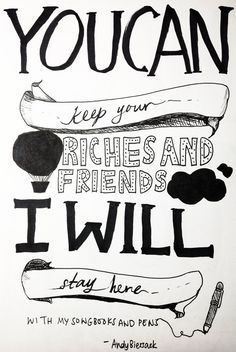 YOU CAN
keep your
RICHES AND
FRIENDS
I WILL
stay here
WITH MY SONGBOOKS AND PENS
- Andy Biersack